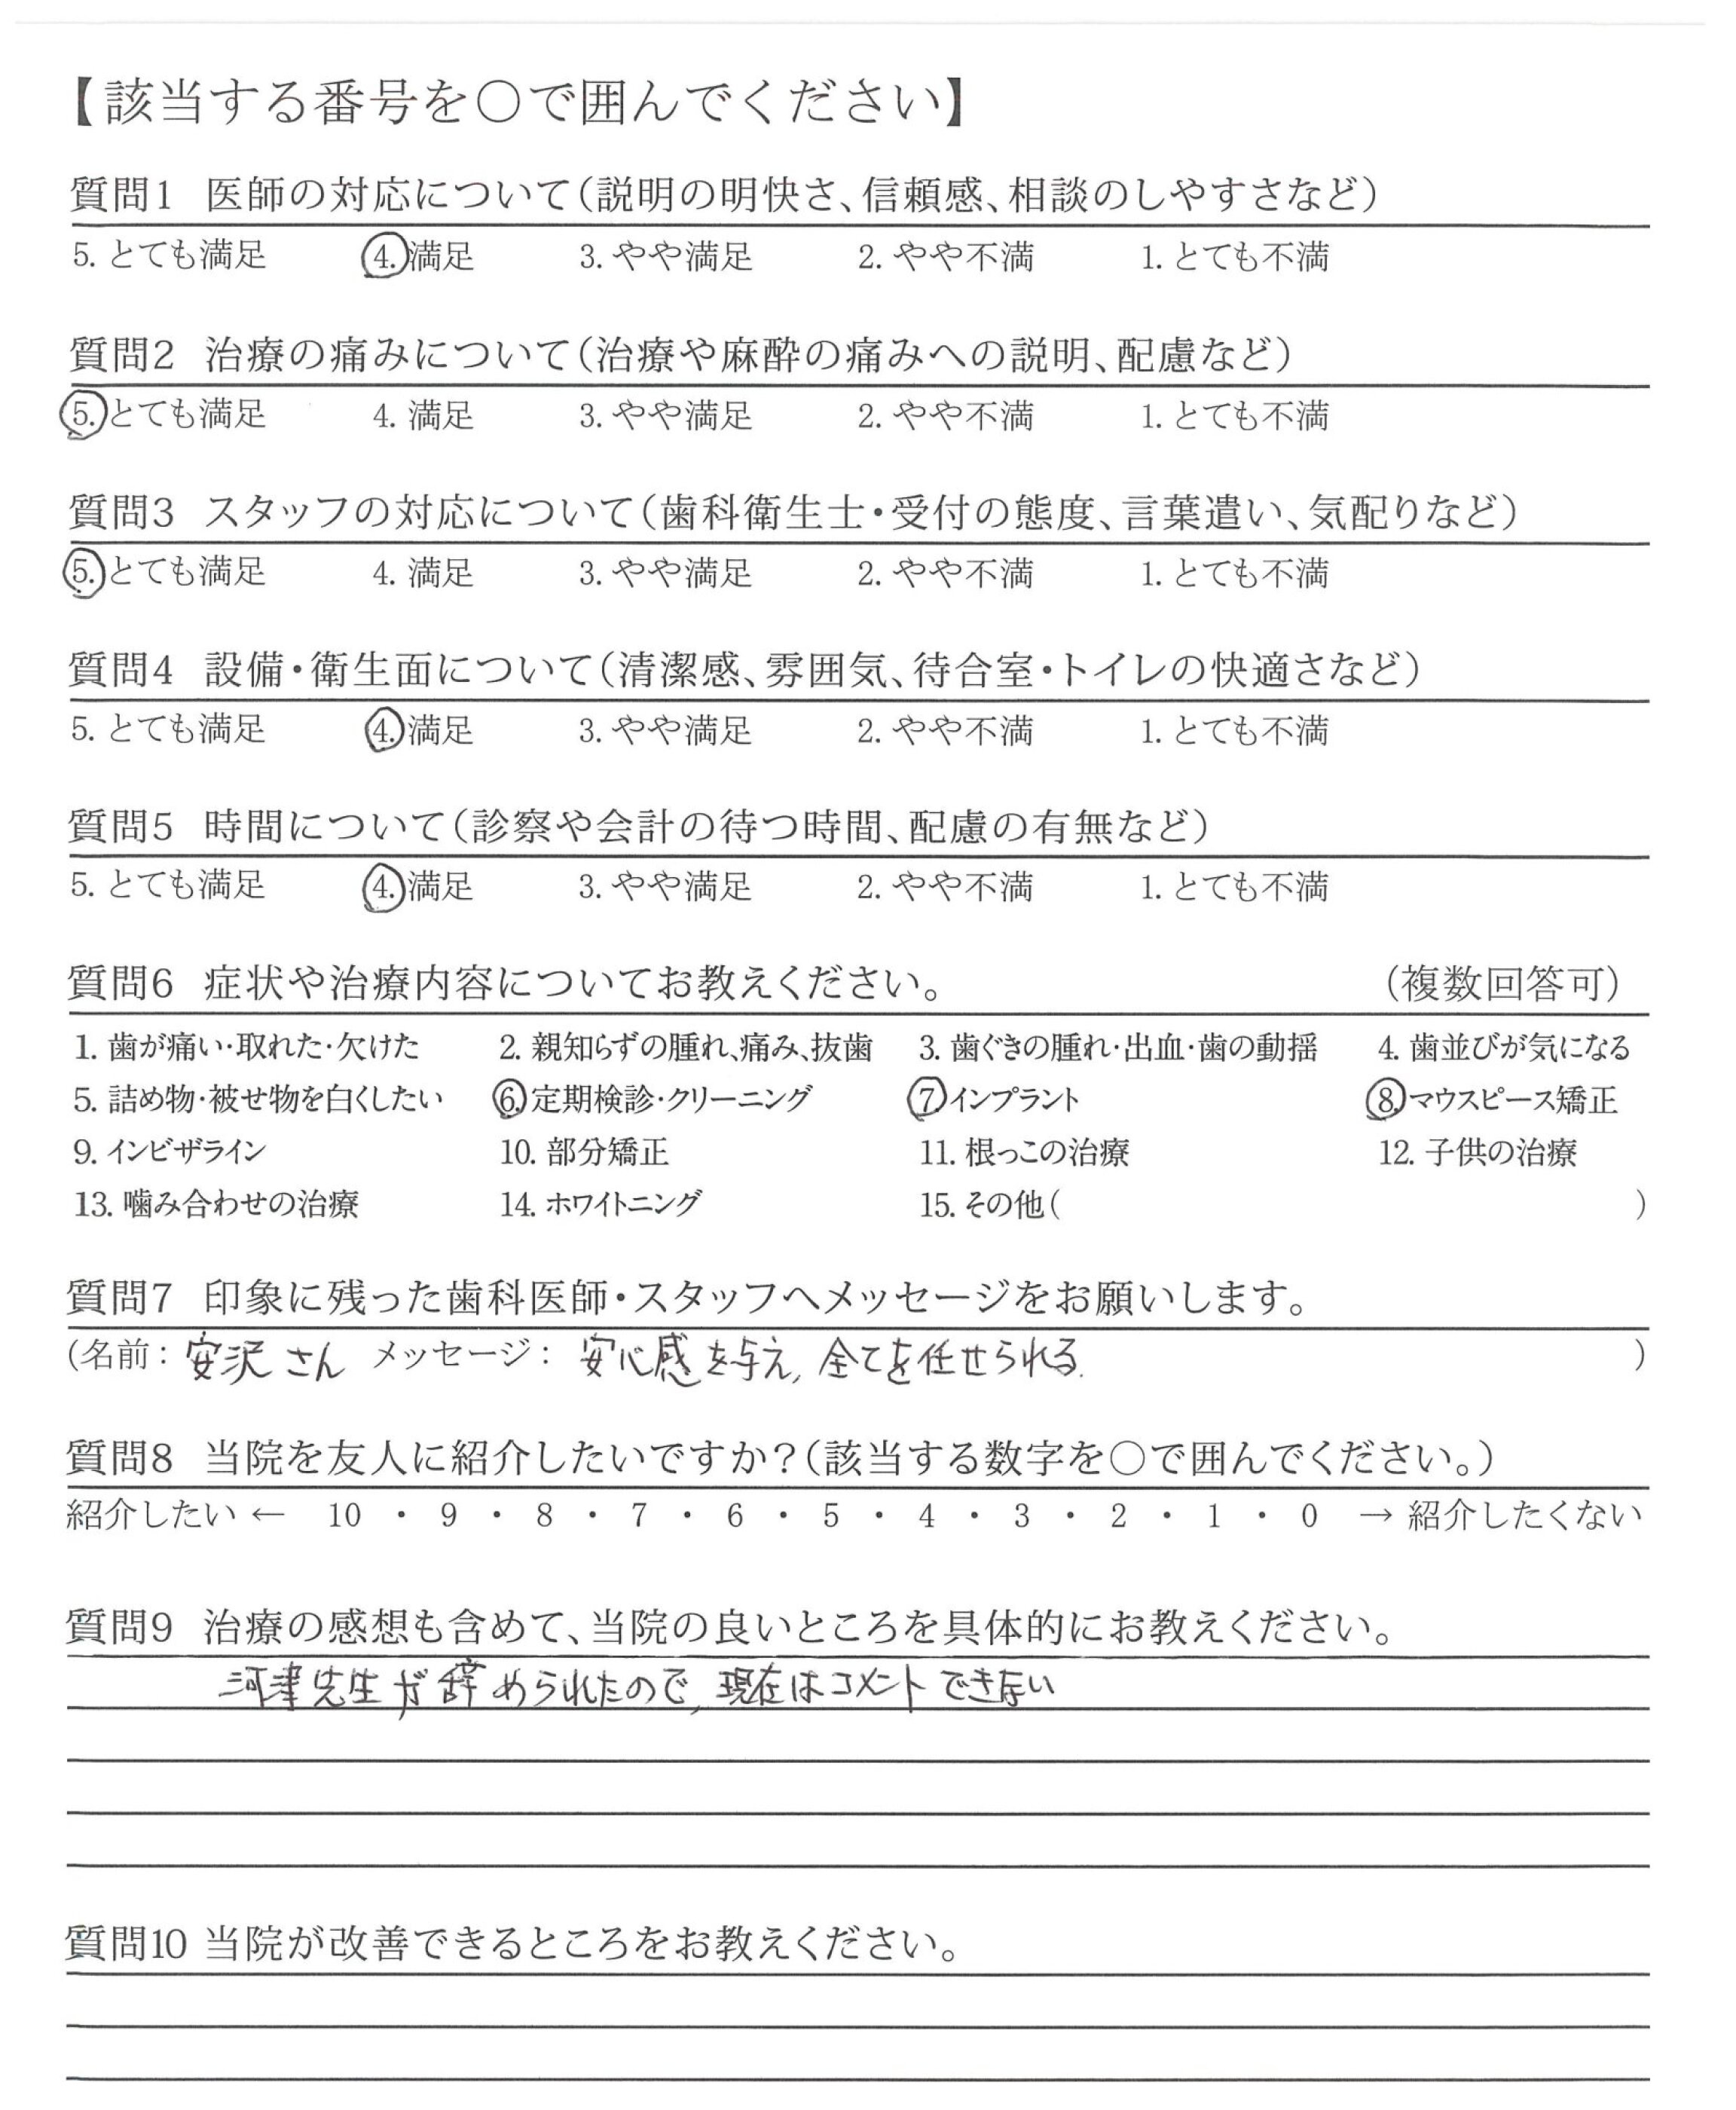 【該当する番号を○で囲んでください】
質問1 医師の対応について(説明の明快さ、信頼感、相談のしやすさなど)
5. とても満足 4. 満足 3. やや満足 2. やや不満 1. とても不満
質問2 治療の痛みについて(治療や麻酔の痛みへの説明、配慮など)
5. とても満足 4. 満足 3. やや満足 2. やや不満 1. とても不満
質問3 スタッフの対応について(歯科衛生士・受付の態度、言葉遣い、気配りなど)
5. とても満足 4. 満足 3. やや満足 2. やや不満 1. とても不満
質問4 設備・衛生面について(清潔感、雰囲気、待合室・トイレの快適さなど)
5. とても満足 4. 満足 3. やや満足 2. やや不満 1. とても不満
質問5 時間について(診察や会計の待つ時間、配慮の有無など)
5. とても満足 4. 満足 3. やや満足 2. やや不満 1. とても不満
質問6 症状や治療内容についてお教えください。 (複数回答可)
1. 歯が痛い・取れた・欠けた 2. 親知らずの腫れ、痛み、抜歯 3. 歯ぐきの腫れ・出血・歯の動揺 4. 歯並びが気になる
5. 詰め物・被せ物を白くしたい 6. 定期検診・クリーニング 7. インプラント 8. マウスピース矯正
9. インビザライン 10. 部分矯正 11. 根っこの治療 12. 子供の治療
13. 噛み合わせの治療 14. ホワイトニング 15. その他( )
質問7 印象に残った歯科医師・スタッフへメッセージをお願いします。
(名前: 安沢さん メッセージ: 安心感を与え, 全てを任せられる. )
質問8 当院を友人に紹介したいですか?(該当する数字を○で囲んでください。)
紹介したい ← 10 ・ 9 ・ 8 ・ 7 ・ 6 ・ 5 ・ 4 ・ 3 ・ 2 ・ 1 ・ 0 → 紹介したくない
質問9 治療の感想も含めて、当院の良いところを具体的にお教えください。
河津先生が辞められたので, 現在はコメントできない
質問10 当院が改善できるところをお教えください。